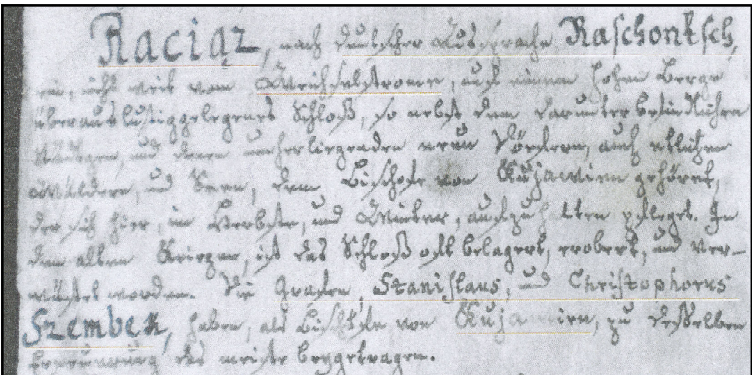 Raciąz, nach deutscher Aussprache Raschontsch,
ein, nicht weit vom Weichselstrome, auf einem hohen Berge
überaus lustig gelegenes Schloß, so nebst dem darunter befindlichen
Städtgen, und denen umherliegenden neun Dörffern, auch etlichen
Wäldern, und Seen, dem Bischofe von Kujawien gehöret,
der sich hier, im Herbste, und Winter, aufzuhalten pfleget. In
den alten Kriegen, ist das Schloß oft belagert, erobert, und ver-
wüstet worden. Die Grafen, Stanislaus, und Christophorus
Szembek, haben, als Bischöfe von Kujawien, zu desselben
Erneuerung das meiste beygetragen.